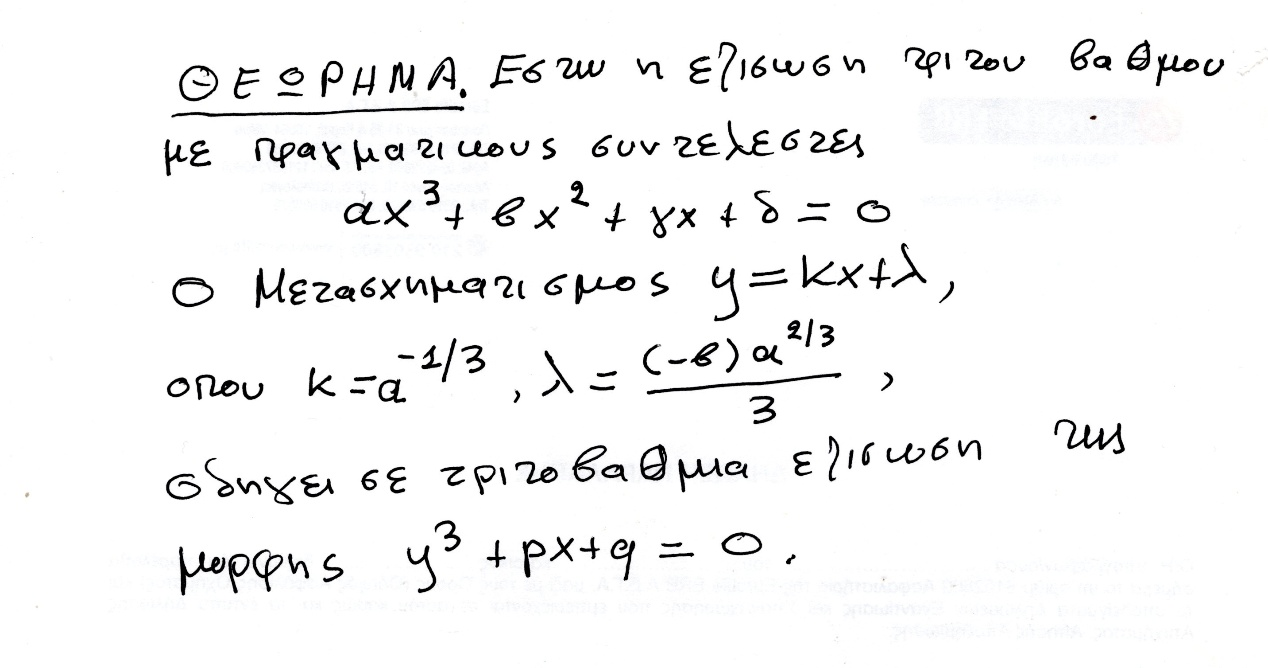 ΘΕΩΡΗΜΑ. Εστω η εξισωση τριτου βαθμου
με πραγματικους συντελεστες
αx³ + βx² + γx + δ = 0
Ο Μετασχηματισμος y = kx+λ,
οπου k = α^{-1/3}, λ = \frac{(-β)α^{2/3}}{3},
οδηγει σε τριτοβαθμια εξισωση της
μορφης y³ + px + q = 0.